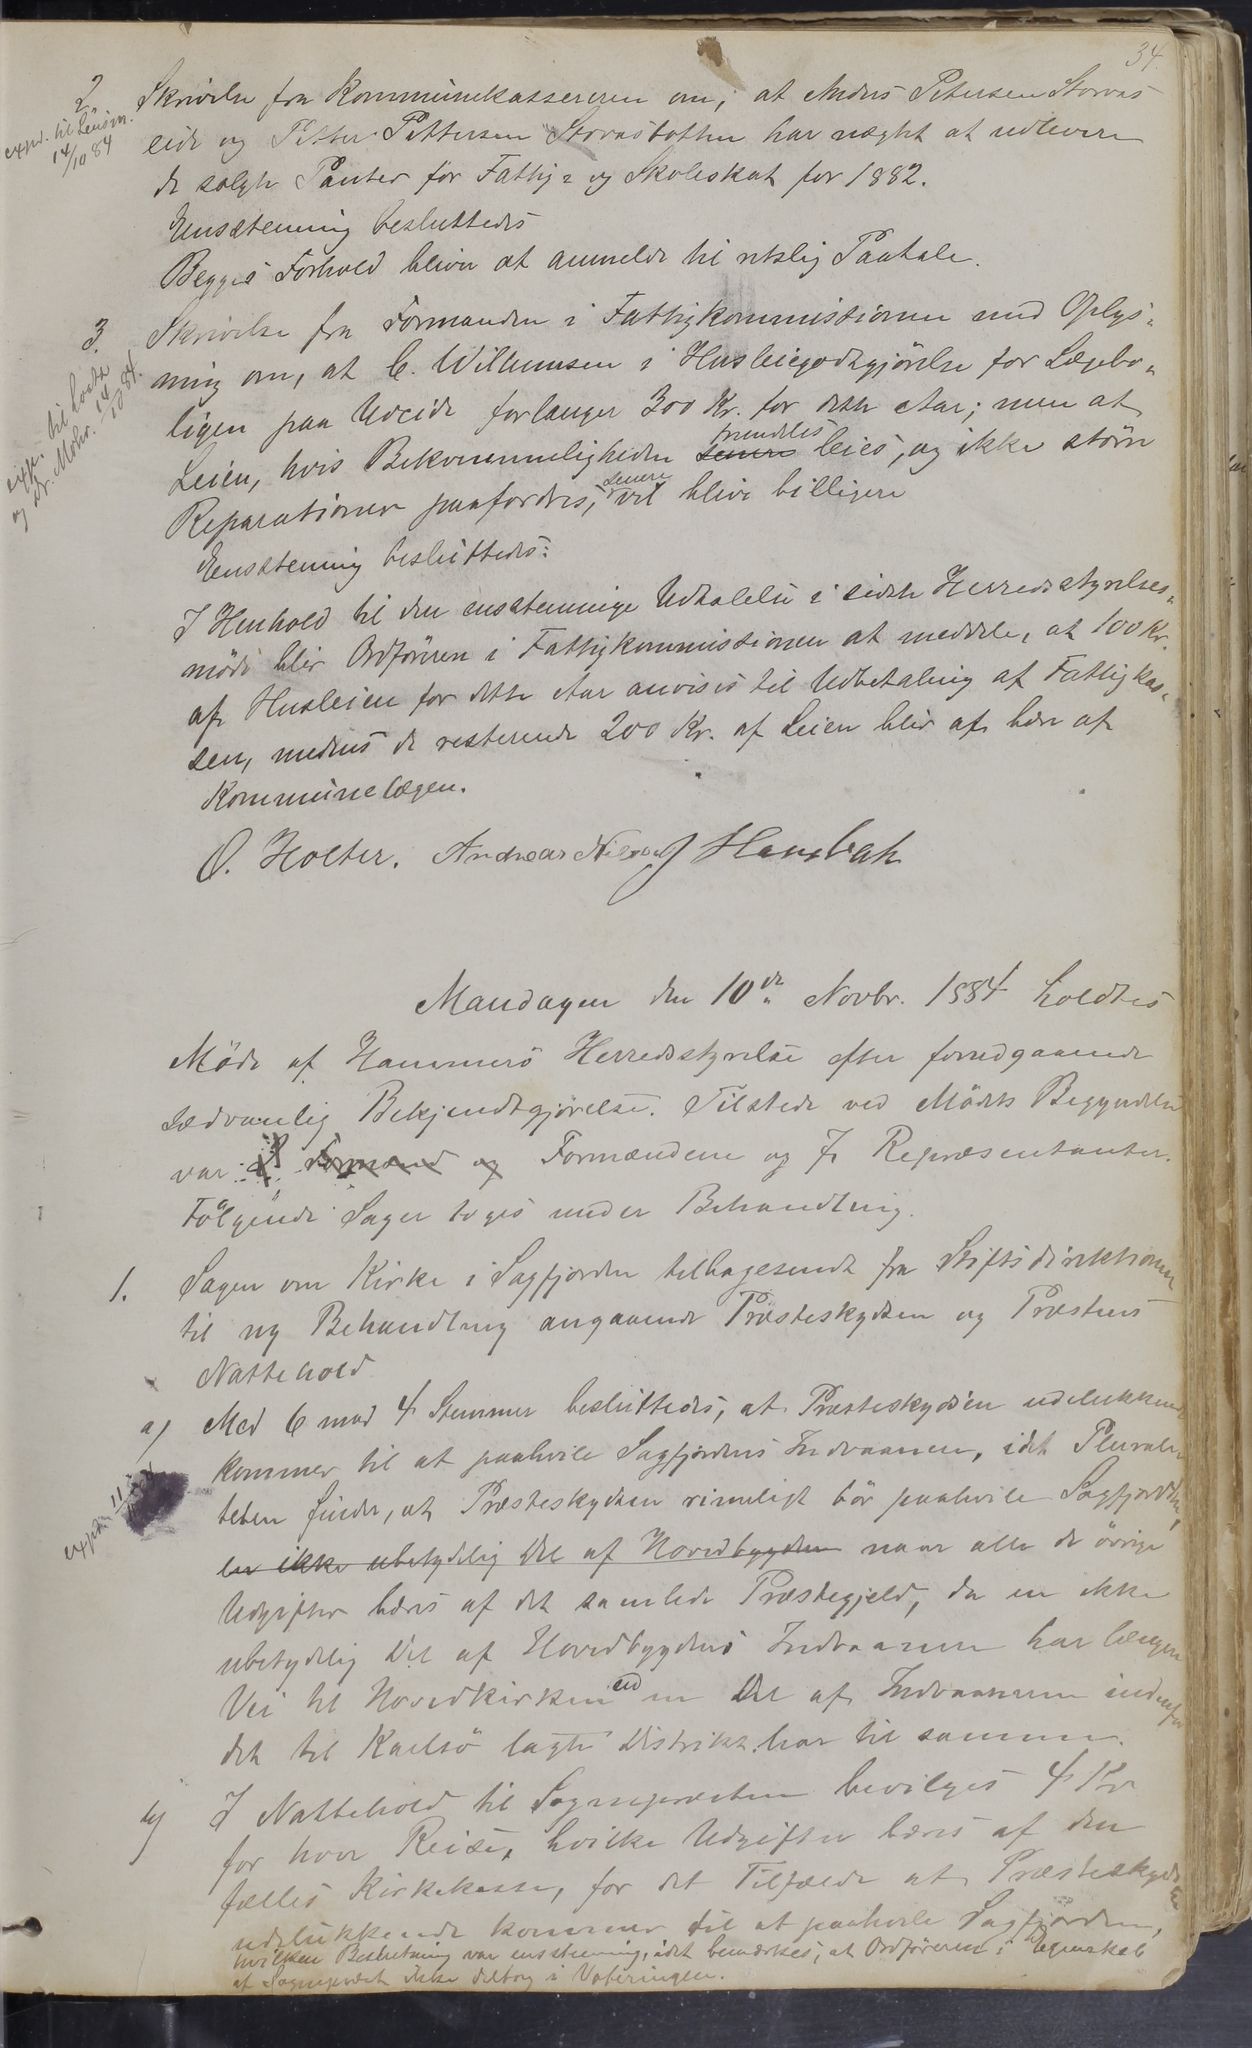 34.
2 Skrivelse fra Kommunekassereren om, at Anders Petersen Storvas
expd. til Lensm. 14/10 84
eide og Petter Pettersen Storvasbotten har nægtet at udlevere
de solgte Panter for Fattig= og Skoleskat for 1882.
Enstemmig besluttedes
Begges Forhold bliver at anmelde til retslig Paatale.
3. Skrivelse fra Formanden i Fattigkommissionen med Oplys=
ning om, at C. Willumsen i Husleiegodtgjörelse for Lægebo=
expd. til
og dr. Mohr. 14/10 84.
ligen paa Uveide forlanger 300 Kr. for dette Aar; men at
Leien, hvis Bekvemmeligheden senere fremdeles leies, og ikke större
Reparationer paafordres, senere vil blive billigere
Enstemmig besluttedes:
I Henhold til den enstemmige Udtalelse i sidste Herredsstyrelses=
möde blir Ordföreren i Fattigkommissionen at meddele, at 100 Kr.
af Husleien for dette Aar anvises til Udbetaling af Fattigkas=
sen, medens de resterende 200 Kr. af Leien blir at bære af
Kommunelægen.
O. Holter. Andreas Nilsen J Hansbak
Mandagen den 10de Novbr. 1884 holdtes
Möde af Hammerö Herredsstyrelse efter foredgaaende
sædvanlig Bekjendtgjörelse. Tilstede ved Mödets Begyndelse
var Formænd og Formændene og 7 Repræsentanter.
Fölgende Sager toges under Behandling.
1. Sagen om Kirke i Sagfjorden tilbagesendt fra Stiftsdirektionen
til ny Behandling angaaende Præsteskydsen og Præstens
Nattehold
a) Med 6 mod 4 Stemmer besluttedes, at Præsteskydsen udelukkende
kommer til at paahvile Sagfjordens Indvaanere, idet Plurali
expd. 11
teten finder, at Præsteskydsen rimeligt bör paahvile Sagfjorden,
en ikke ubetydelig Del af Hovedbygden naar alle de övrige
Udgifter bæres af det samlede Præstegjeld, da en ikke
ubetydelig Del af Hovedbygdens Indvaanere har længere
Vei til Hovedkirken end en Del af Indvaanerne indenfor
det til Kaelsö lagte Distrikt har til samme.
b) I Nattehold til Sognepræsten bevilges 4 Kr
for hver Reise, hvilke Udgifter bæres af den
fælles Kirkekasse, for det Tilfælde at Præsteskydsen
udelukkende kommer til at paahvile Sagfjorden,
hvilken Beslutning var enstemmig, idet bemærkes, at Ordföreren i Egenskab
af Sognepræst ikke deltog i Voteringen.